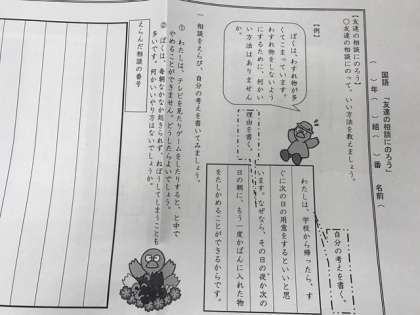 国語 「友達の相談にのろう」
（ ）年（ ）組（ ）番 名前（
【友達の相談にのろう】
○友達の相談にのって、いい方法を教えましょう。
【例】
ぼくは、わすれ物が多
くてこまっています。
わすれ物をしないよう
にするために、何かい
い方法はありません
か。
自分の考えを書く。
わたしは、学校から帰ったら、す
ぐに次の日の用意をするといいと思
います。なぜなら、その日の夜か次の
日の朝に、もう一度かばんに入れた物
をたしかめることができるからです。
理由を書く。
一 相談をえらび、自分の考えを書いてみましょう。
① わたしは、テレビを見たりゲームをしたりすると、と中で
やめることができません。どうしたらよいでしょう。
② ぼくは、毎朝なかなか起きられず、ねぼうしてしまうことも
多いです。何かいいやり方はないでしょうか。
えらんだ相談の番号